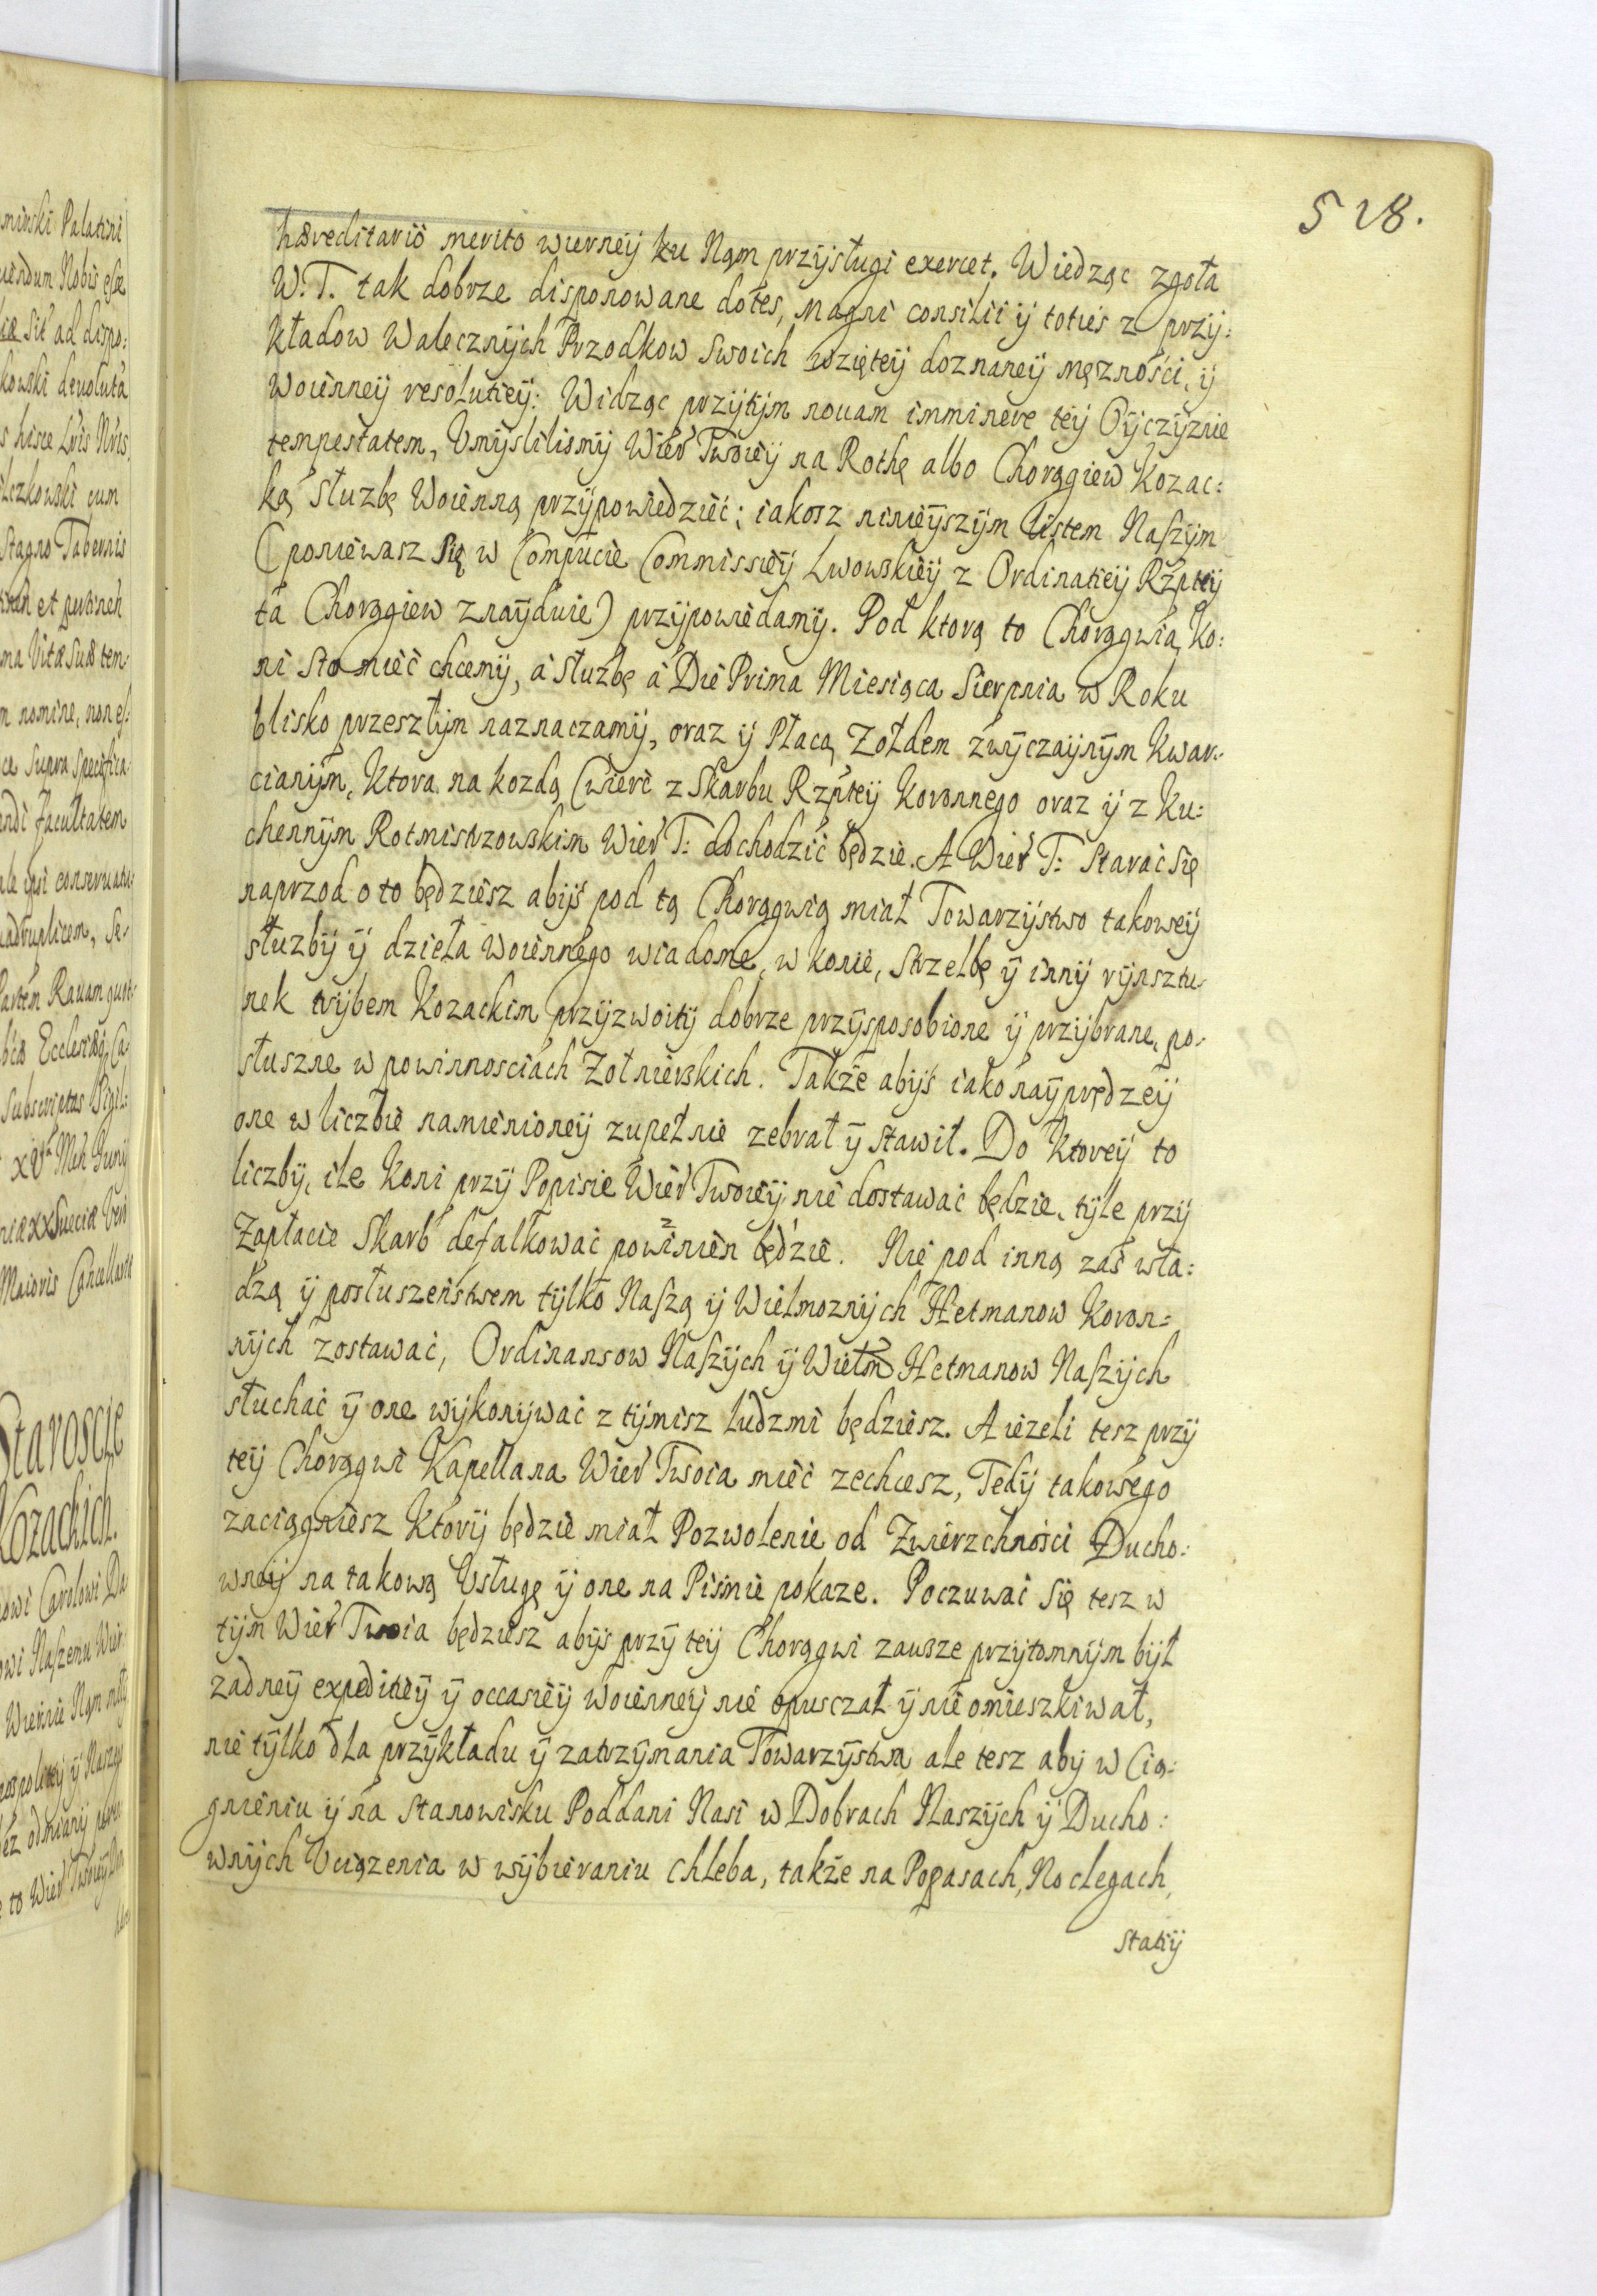 518.
hæreditario merito wierneÿ ku Nąm przÿsługi exercet. Wiedząc zgoła
W. T. tak dobrze disponowane dotes, magni consilii ÿ toties z przÿ:
kładow Walecznÿch Przodkow Swoich wzięteÿ doznaneÿ męzności, ÿ
Woienneÿ resolutieÿ: Widząc przÿtÿm nouam imminere teÿ Oÿczÿznie
tempestatem, Vmÿslilismÿ Wierᵗ Twoieÿ na Rothę albo Chorągiew Kozac:
ką służbę Woienną przÿpowiedzieć; iakosz ninieÿszÿm Listem Naszÿm
(poniewasz Się w Compucie Commissieÿ Lwowskieÿ z Ordinatieÿ Rzpteÿ
ta Chorągiew znaÿduie) przÿpowiedamÿ. Pod ktorą to Chorągwią Ko:
ni sto mieć chcemÿ, a służbę a Die Prima Miesiąca Sierpnia w Roku
blisko przeszłÿm naznaczamÿ, oraz ÿ Płacą Zołdem zwÿczaÿnÿm Kwar:
cianÿm, Ktora na kozdą Cwierć z Skarbu Rzpteÿ Koronnego oraz ÿ z Ku:
chennÿm Rotmistrzowskim Wierᵗ T: dochodzić będzie. A Wierᵗ T: Starać Się
naprzod o to będziesz abÿś pod tą Chorągwią miał Towarzÿstwo takoweÿ
służbÿ ÿ dzieła Woiennego wiadome, w konie, Strzelbę ÿ innÿ rÿnsztu:
nek trÿbem Kozackim przÿzwoitÿ dobrze przÿsposobione ÿ przÿbrane, po:
słuszne w powinnosciach Zołnierskich. Także abÿś iako naÿprędzeÿ
one w liczbie namienioneÿ zupełnie zebrał ÿ stawił. Do Ktoreÿ to
liczbÿ, ile Koni przÿ Popisie Wierᵗ Twoieÿ nie dostawać będzie, tÿle przÿ
Zapłacie Skarb defalkować powinien będzie. Nie pod inną zaś wła:
dzą ÿ posłuszeństwem tÿlko Naszą ÿ Wielmoznÿch Hetmanow Koron:
nÿch zostawać, Ordinansow Naszÿch ÿ Wielm Hetmanow Naszÿch
słuchać ÿ one wÿkonÿwać z tÿmisz ludzmi będziesz. A ieżeli tesz przÿ
teÿ Chorągwi Kapellana Wierᵗ Twoia mieć zechcesz, Tedÿ takowego
zaciągniesz Ktorÿ będzie miał Pozwolenie od Zwierzchności Ducho:
wneÿ na takową Vsługę ÿ one na Piśmie pokaze. Poczuwać Się tesz w
tÿm Wierᵗ Twoia będziesz abÿś przÿ teÿ Chorągwi zawsze przÿtomnÿm bÿł
zadneÿ expeditieÿ ÿ occasieÿ Woienneÿ nie opusczał ÿ nie omieszkiwał,
nie tÿlko dla przÿkładu ÿ zatrzÿmania Towarzÿstwa ale tesz abÿ w Cią:
gnieniu ÿ na Stanowisku Poddani Nasi w Dobrach Naszÿch ÿ Ducho:
wnÿch Vciązenia w wÿbieraniu chleba, także na Popasach, Noclegach,
statiÿ